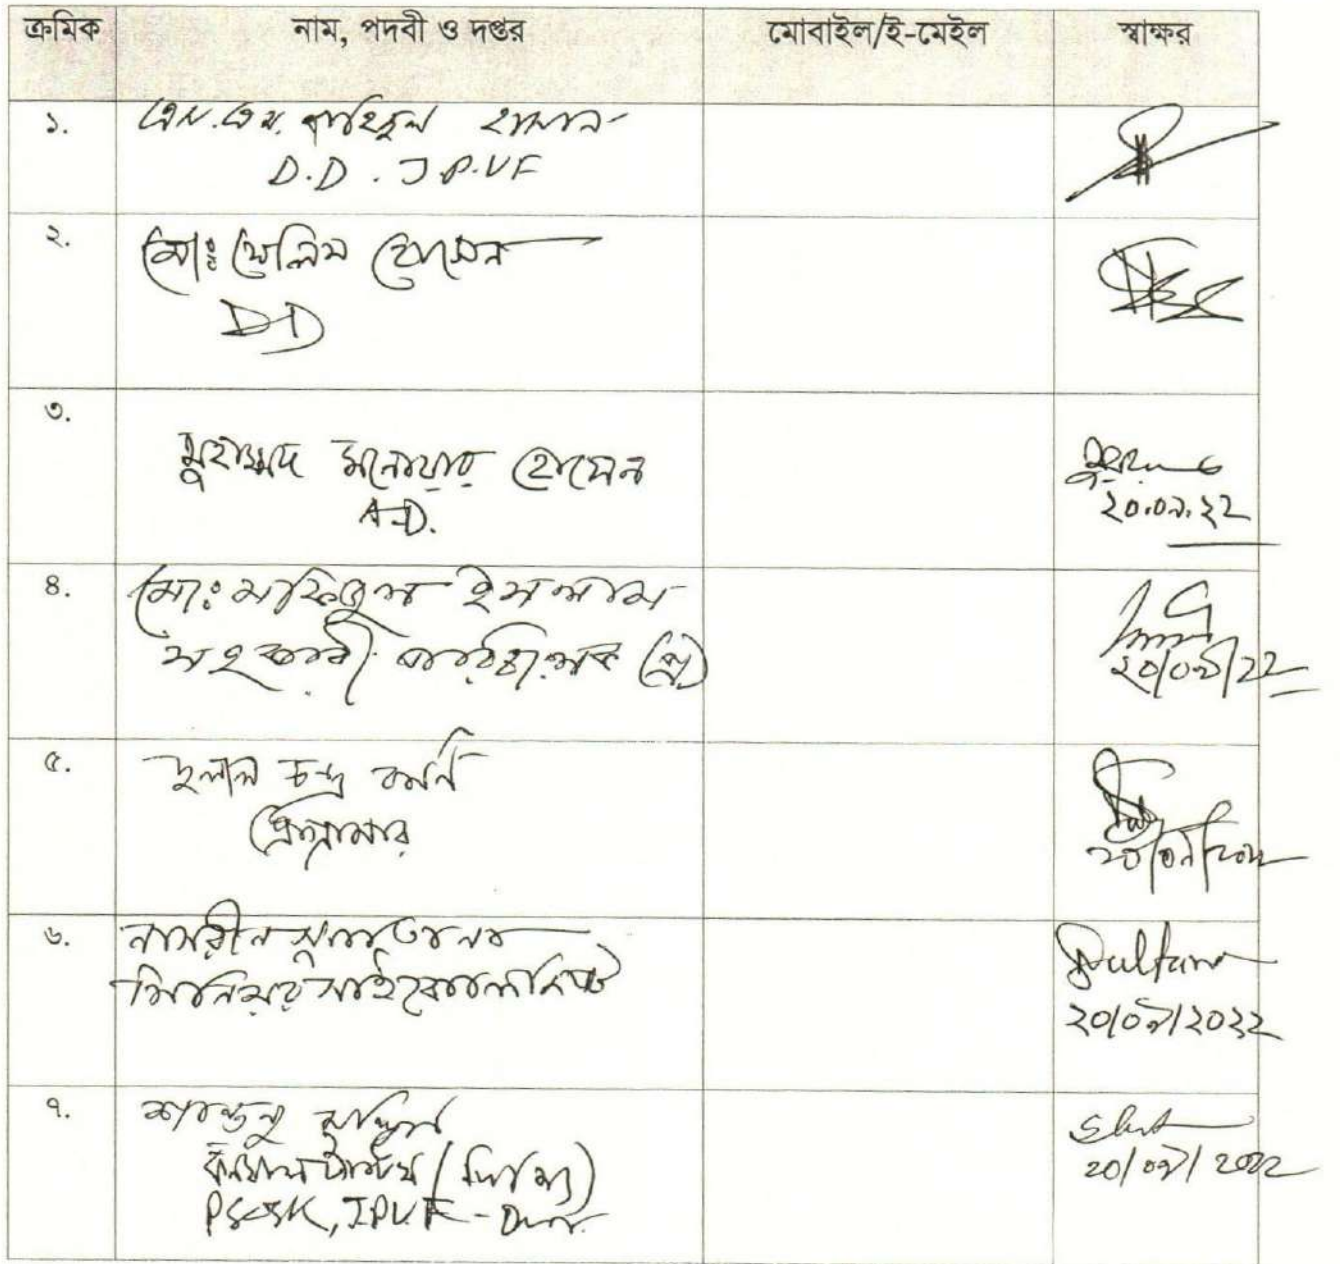 ক্রমিক নাম, পদবী ও দপ্তর মোবাইল/ই-মেইল স্বাক্ষর
১. এস.এম. হাসান
D.D. J.P.U.F
২. মোঃ সেলিম হোসেন
DD
৩. মুহাম্মদ মনোয়ার হোসেন
A.D.
২০.০৯.২২
৪. মোঃ মফিজুল ইসলাম
সহকারী পরিচালক (প্র)
২০/০৯/২২
৫. দুলাল চন্দ্র বর্মন
প্রোগ্রামার
২০/০৯/২০২২
৬. নাসরীন সুলতানা Sultana
সিনিয়র সাইকোলজিস্ট
২০/০৯/২০২২
৭. শান্তনু
কনসালটেন্ট
PSOSK, JPUF -
২০/০৯/২০২২